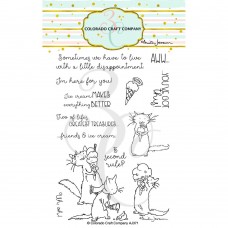 COLORADO CRAFT COMPANY
Anita Jeram
Sometimes we have to live
with a little disappointment
AWW...
I'm here for you!
Ice cream MAKES
everything BETTER
Two of life's
GREATEST TREASURES...
friends & ice cream
5
second
rule?
© Colorado Craft Company AJ371